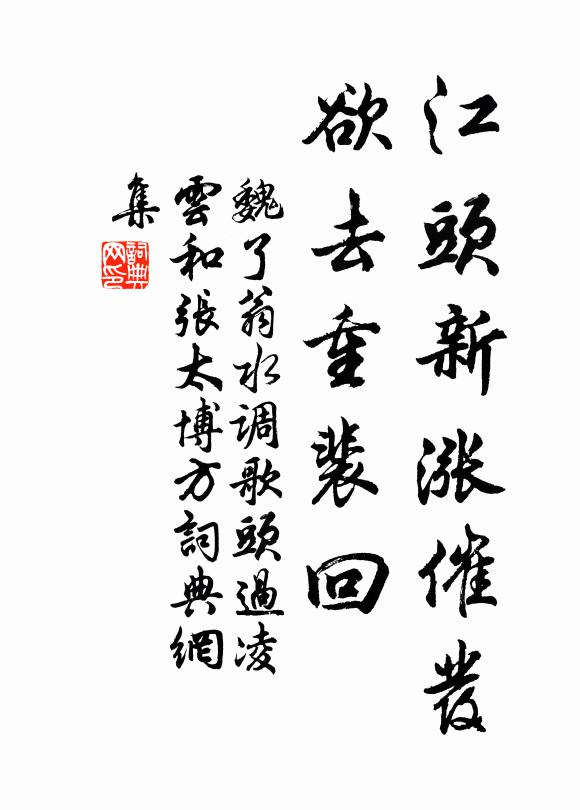 江頭新漲催發
欲去重裴回
魏了翁水调歌頭過凌
雲和張太博方詞典網
集
詞典网印